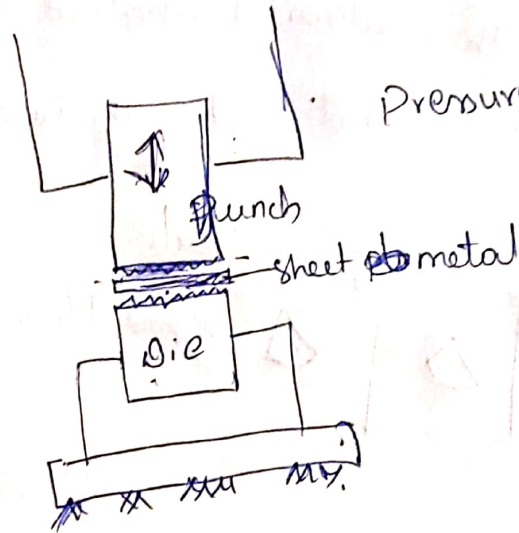 Pressur
Punch
sheet metal
Die